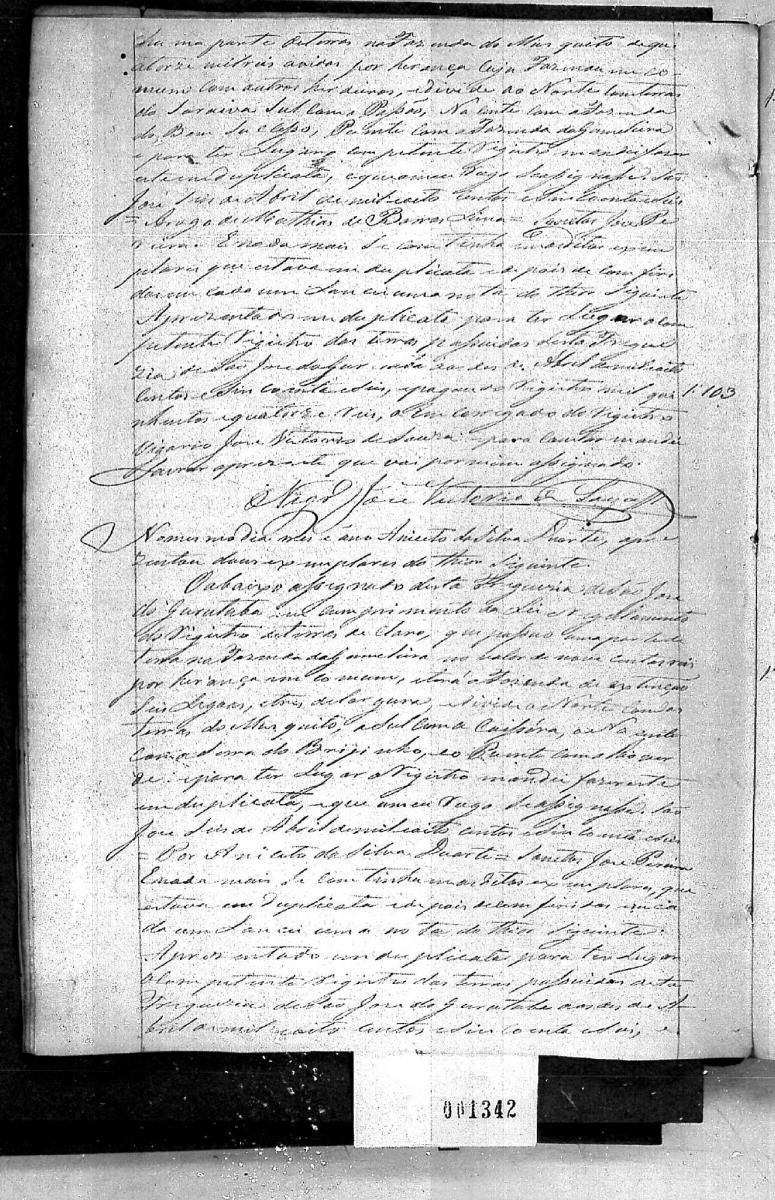 huma parte de terras na Fazenda do Musquito de qu-
atorze mil reis avidos por herança Cuja Fazenda em co-
mum com outros herdeiros, edivide ao Norte com terras
do Saraiva Sul com o Papão, Nacente com a Fazenda
do Bom Suclesso, Puente com a Fazenda da Gamelleira
e para ter Lugar o competente Rigistro mandei fazer
este em duplicata, e que a meu rogo se assignasse. São
Jose Seis de Abril de mil oito centos e Sincoenta e Seis
= Arogo de Mathias de Barros Lima = Santos Jose Pe-
reira. E nada mais se continha em os ditos exem-
plares que estava em duplicata e depois de comfiri-
dos em cada um Lancei uma nota do thior Siguinte
Aprezentado em duplicata para ter Lugar o com
petente Rigistro das terras possuidas desta Fregue-
zia de São Jose do Gurutuba aos des de Abril de mil oito
centos e Sincoenta e Seis, e pagou do Rigistro mil qui
nhentos e quatorze reis, o Emcarregado do Rigistro
Vigario Jose Victorio de Souza e para constar mandei
Lavrar a prezente que vai por mim assignado.
O Vigrº Jose Victorio de Souza
1:103
No mesmo dia mes e ano Aniceto da Silva Duarte, apre
zentou dous exemplares do thior Siguinte.
O abaixo assignado desta Freguezia de São Jose
do Gurutuba em cumprimento da Lei e Regulamento
do Rigistro de terras declaro, que possuo uma parte de
terra na Fazenda da Gamelleira no valor de nove centos reis
por herança em comum, e terá a Fazenda de extenção
Seis Legoas, e tres de largura, e divide o Norte com as
terras do Musquito, o Sul com a Caissára, o Nacente
com a Serra do Brijinho, e o Puente com o Rio ver
de: e para ter Lugar o Rigistro mandei fazer este
em duplicata, e que a meu Rogo se assignasse. São
Jose Seis de Abril de mil oito centos e Sincoenta e Seis
= Por Aniceto da Silva Duarte = Santos Jose Pereira
E nada mais se continha nos ditos exemplares, que
estava em duplicata e depois de comfiridos em ca
da um Lancei uma nota do thior Siguinte:
Aprezentado em duplicata para ter Lugar
o Competente Rigistro das terras possuidas desta
Freguezia de São Jose do Gurutuba aos des de A
bril de mil oito centos e Sincoenta e Seis, e
001342